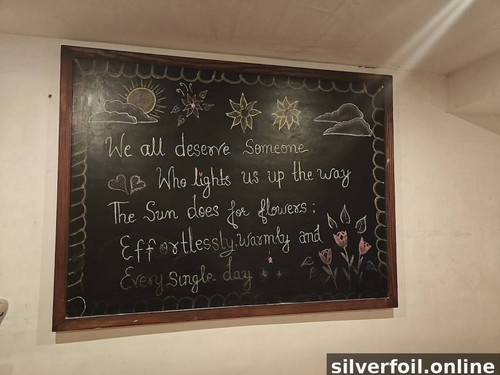 We all deserve Someone
Who lights us up the way
The Sun does for flowers:
Effortlessly, Warmly and
Every Single day
silverfoil.online